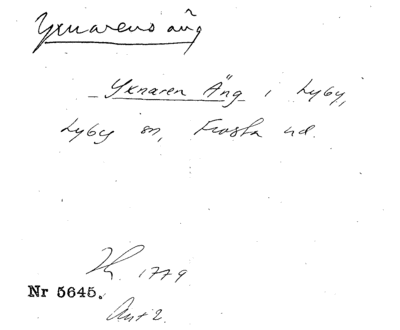 Yxnarens äng
Yxnaren Äng i Lyby,
Lyby sn, Frosta hd.
1779
Nr 5645.
Ant 2.